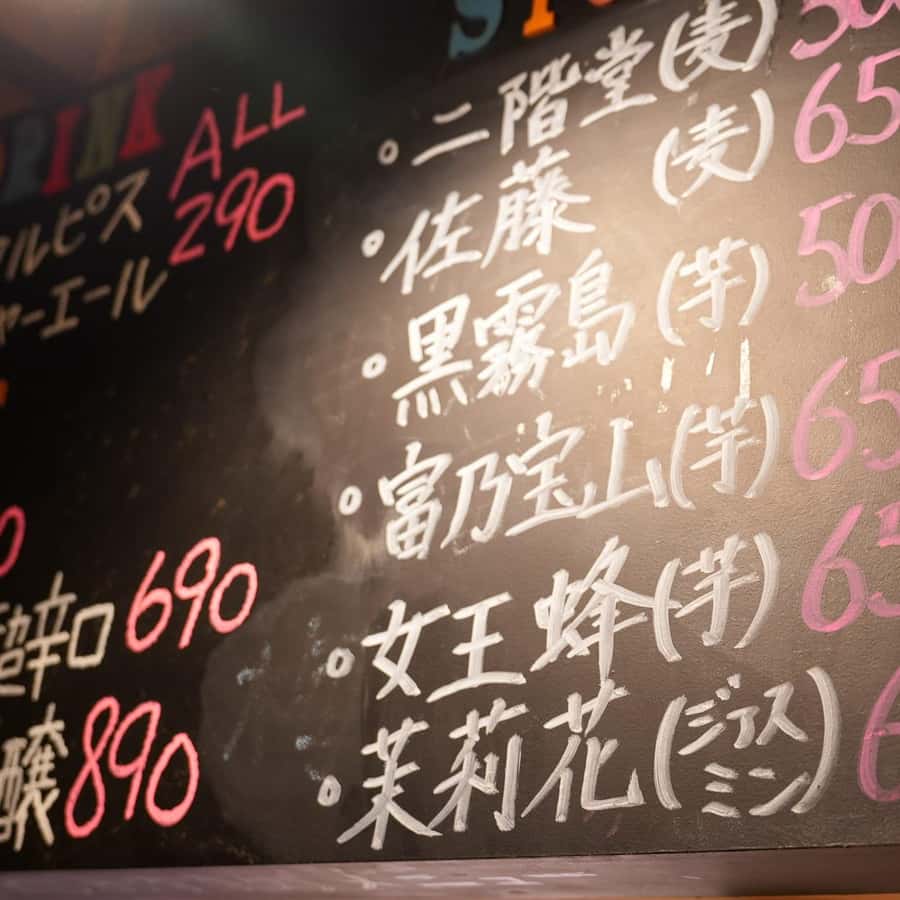 DRINK
ALL
290
ルピス
ャーエール
超辛口 690
醸 890
二階堂(麦)
佐藤 (麦) 65
黒霧島(芋) 50
富乃宝山(芋) 65
女王蜂(芋)
茉莉花(ジャスミン)